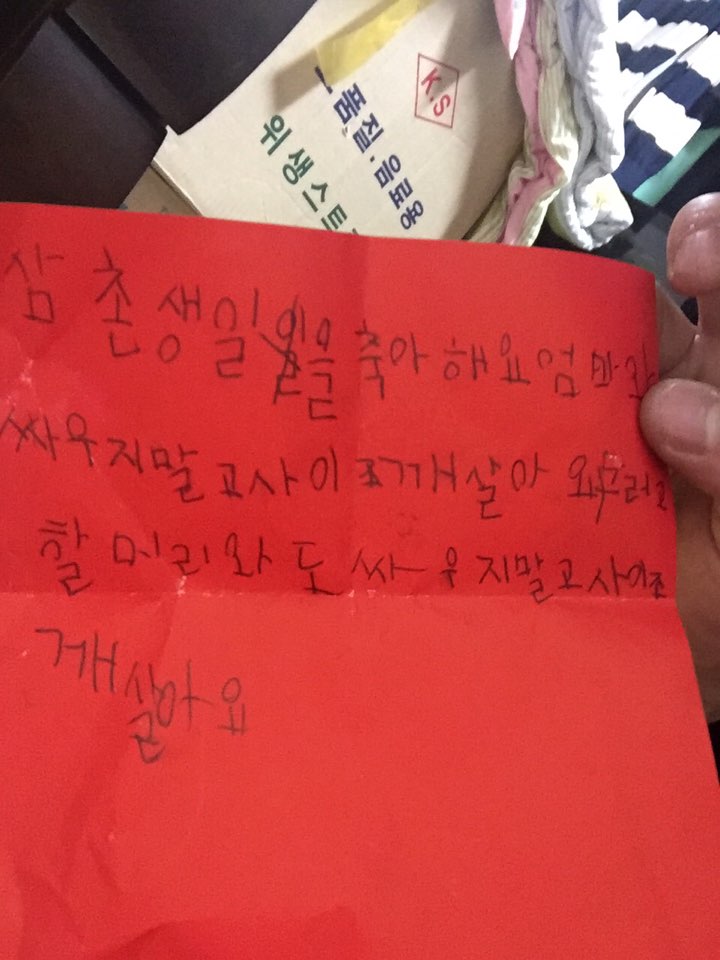 K.S
품.질.음료용
위생스트
삼촌생일을축아해요엄마와
싸우지말고사이조개살아
할머리와도싸우지말고사이조
개살아요